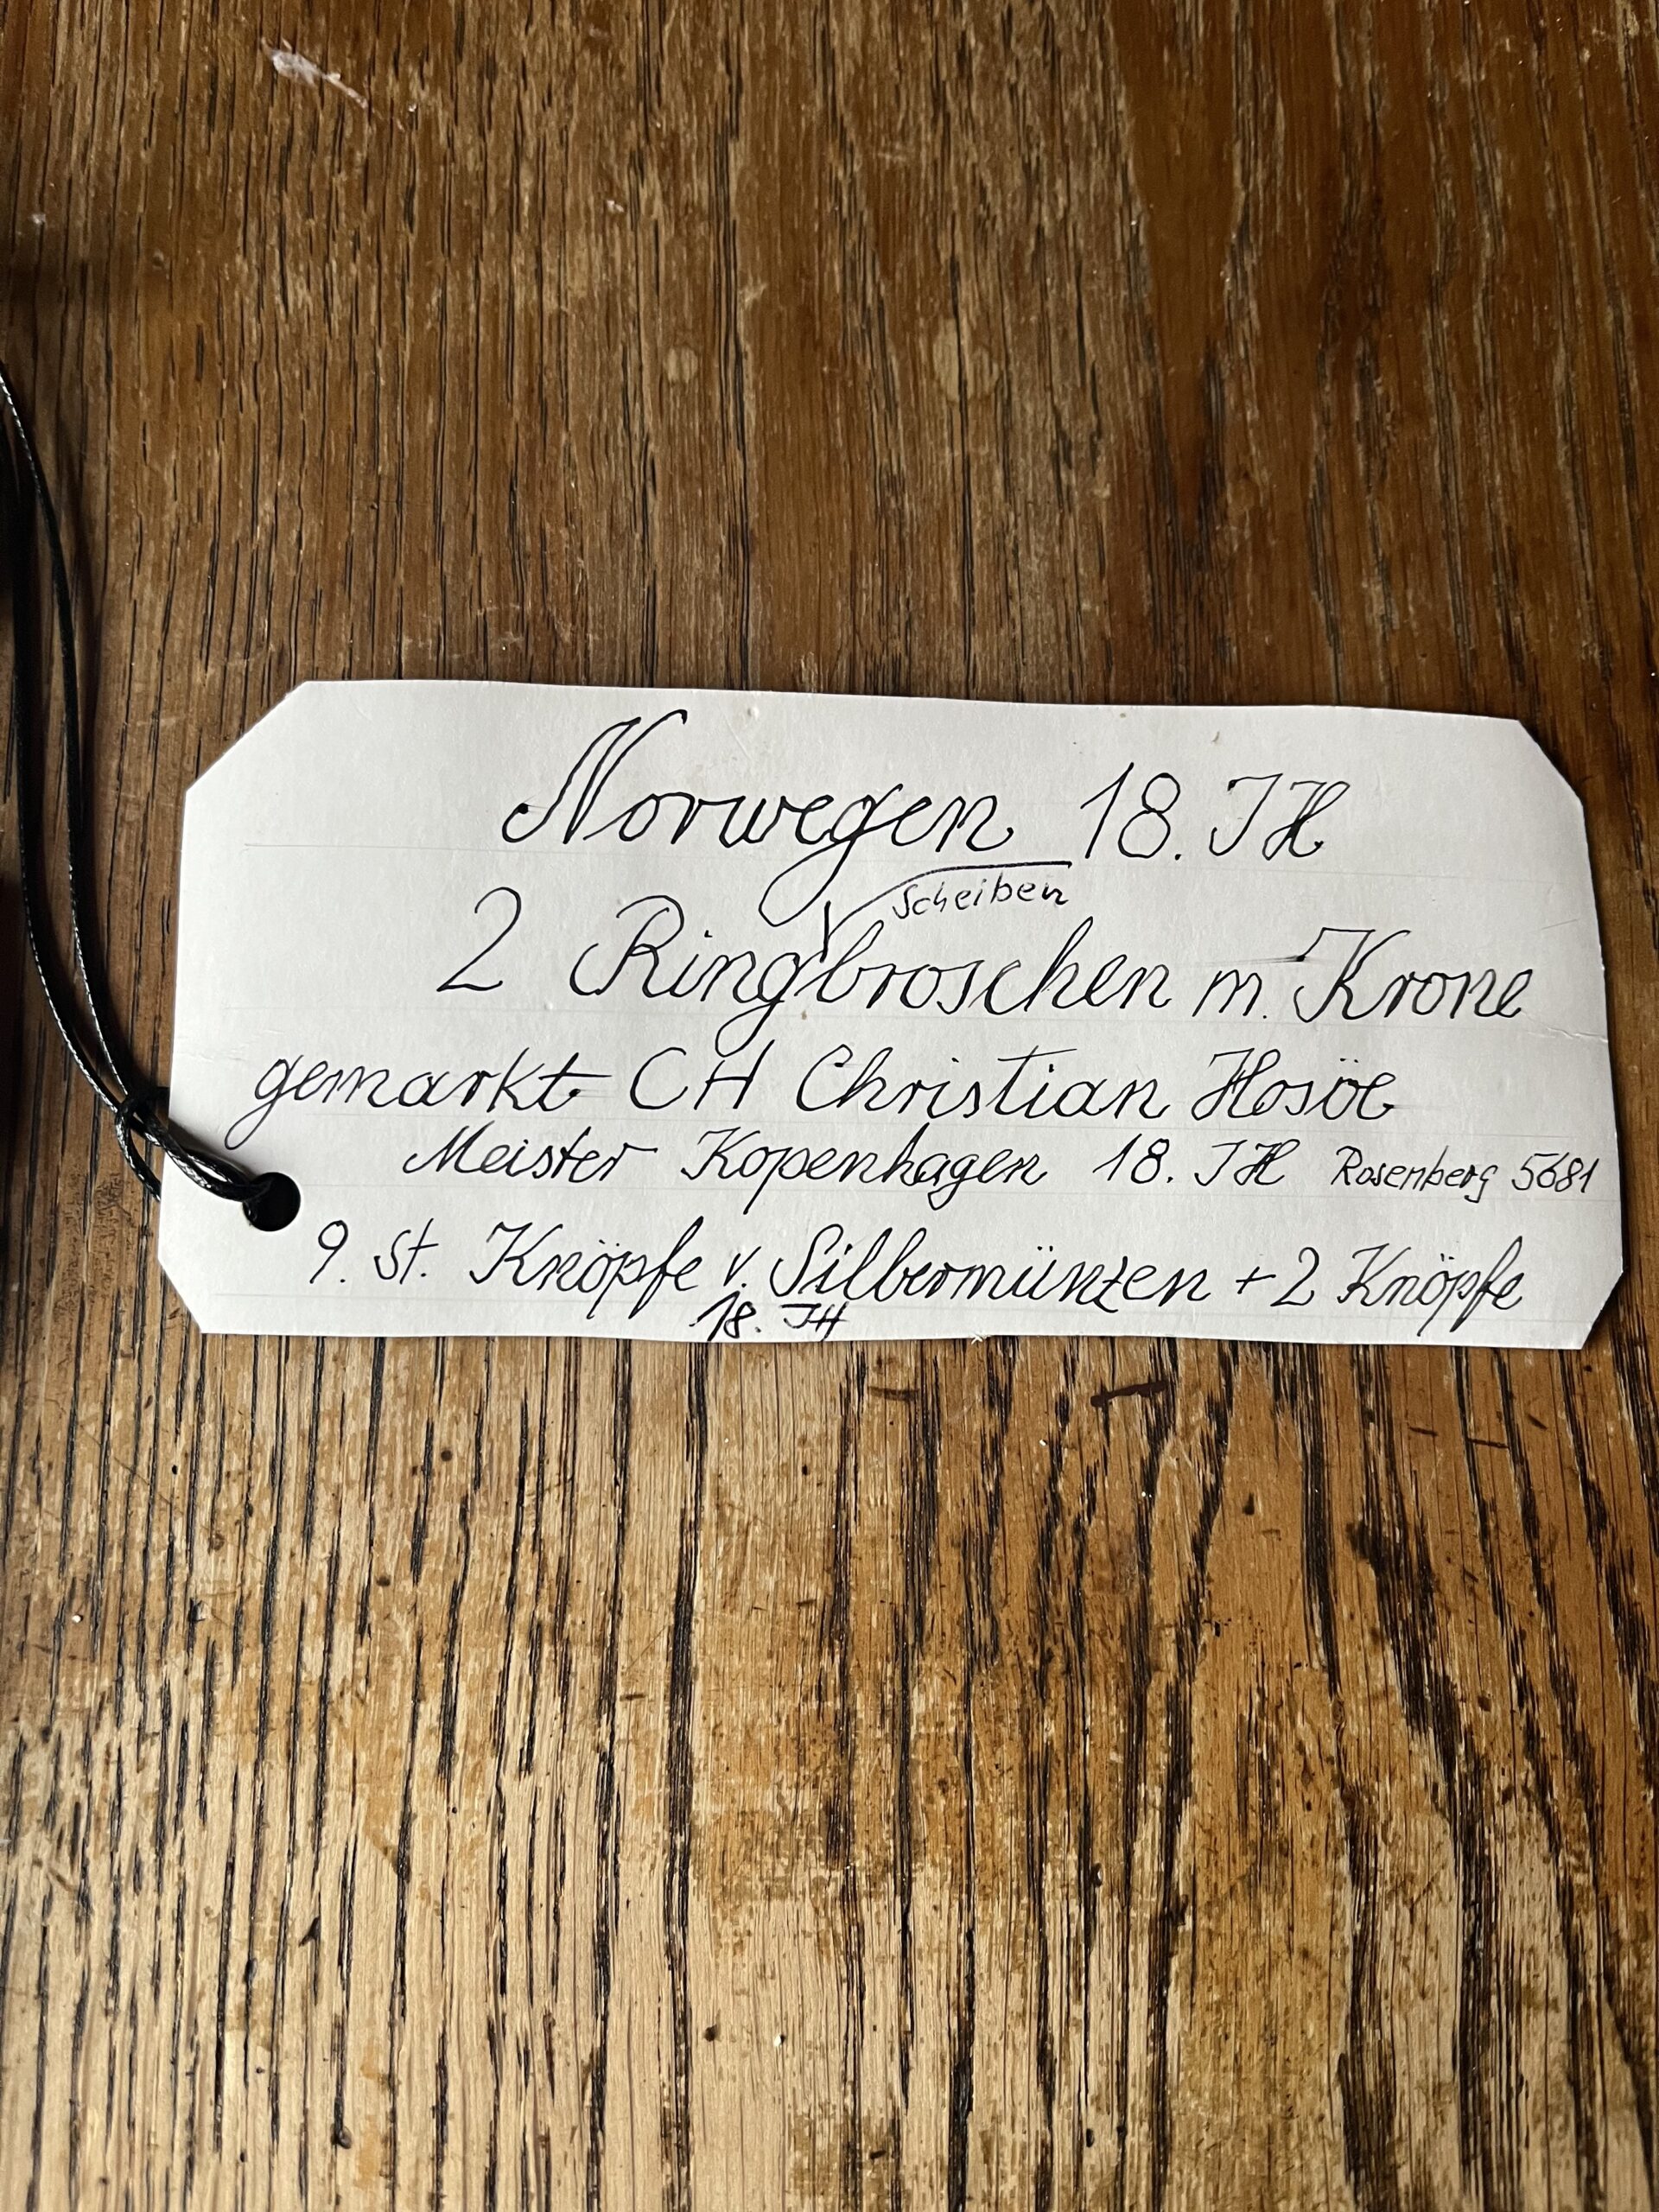 Norwegen 18. JH
Scheiben
2 Ringbroschen m. Krone
gemarkt CH Christian Hosöe
Meister Kopenhagen 18. JH Rosenberg 5681
9. St. Knöpfe v. Silbermünzen + 2 Knöpfe
18. JH